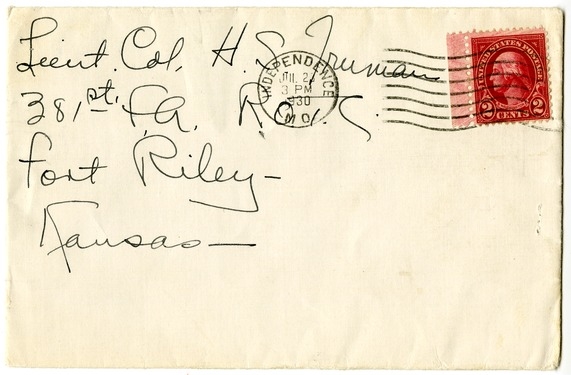 Lieut. Col. H. S. Truman
381st. F.A. R.O.T.C.
Fort Riley—
Kansas—
INDEPENDENCE
JUL 2
3 PM
1930
MO.
UNITED STATES POSTAGE
2 CENTS 2